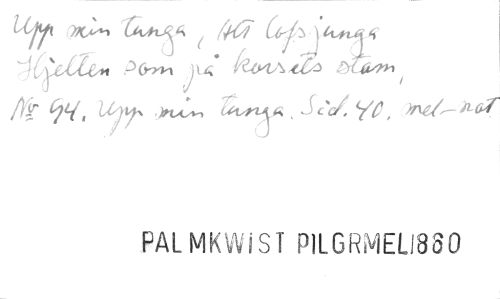 Upp min tunga, Att lofsjunga
Hjelten som på korsets stam,
No 94. Upp min tunga. Sid. 40. mel-not
PALMKWIST PILGRMEL1860